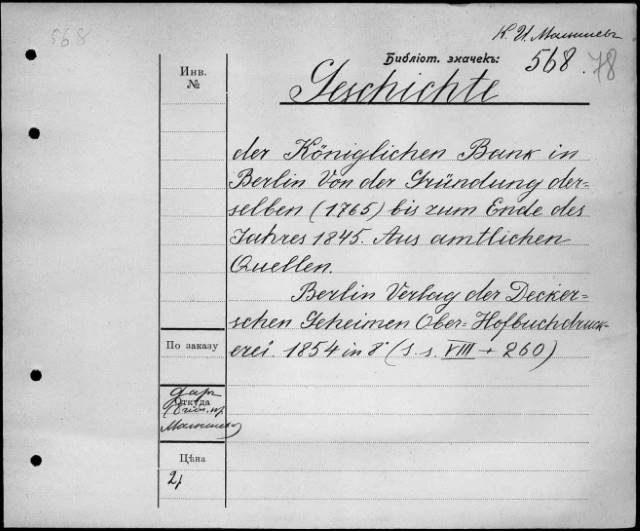 568
К. И. Малышевъ
Библіот. значекъ: 568. 78
Инв.
№
Geschichte
der Königlichen Bank in
Berlin Von der Gründung der=
selben (1765) bis zum Ende des
Jahres 1845. Aus amtlichen
Quellen.
Berlin Verlag der Decker=
schen Geheimen Ober=Hofbuchdruck=
erei. 1854 in 8° (s. s. VIII + 260)
По заказу
даръ
Откуда
Малышева
Цѣна